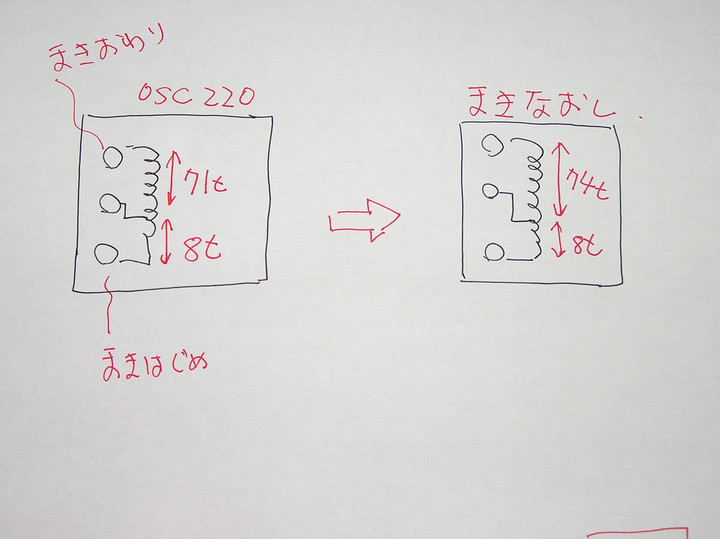 まきおわり
OSC 220
71t
8t
まきはじめ
まきなおし.
74t
8t